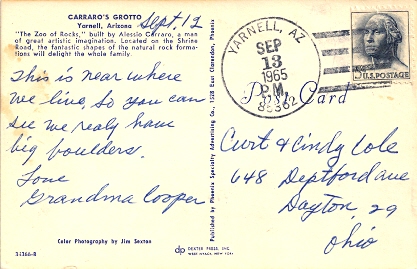 CARRARO'S GROTTO
Yarnell, Arizona
"The Zoo of Rocks," built by Alessio Carraro, a man
of great artistic imagination. Located on the Shrine
Road, the fantastic shapes of the natural rock forma-
tions will delight the whole family.
Sept. 12
This is near where
we live, so you can
see we realy have
big boulders.
Love
Grandma Cooper
Color Photography by Jim Sexton
31366-B
Published by Phoenix Specialty Advertising Co., East Clarendon, Phoenix
DEXTER PRESS, INC.
WEST NYACK, NEW YORK
dp
YARNELL, AZ
SEP
13
P.M.
1965
85362
5c U.S. POSTAGE
Post Card
Curt & Cindy Cole
648 Deptford ave
Dayton, 29
Ohio